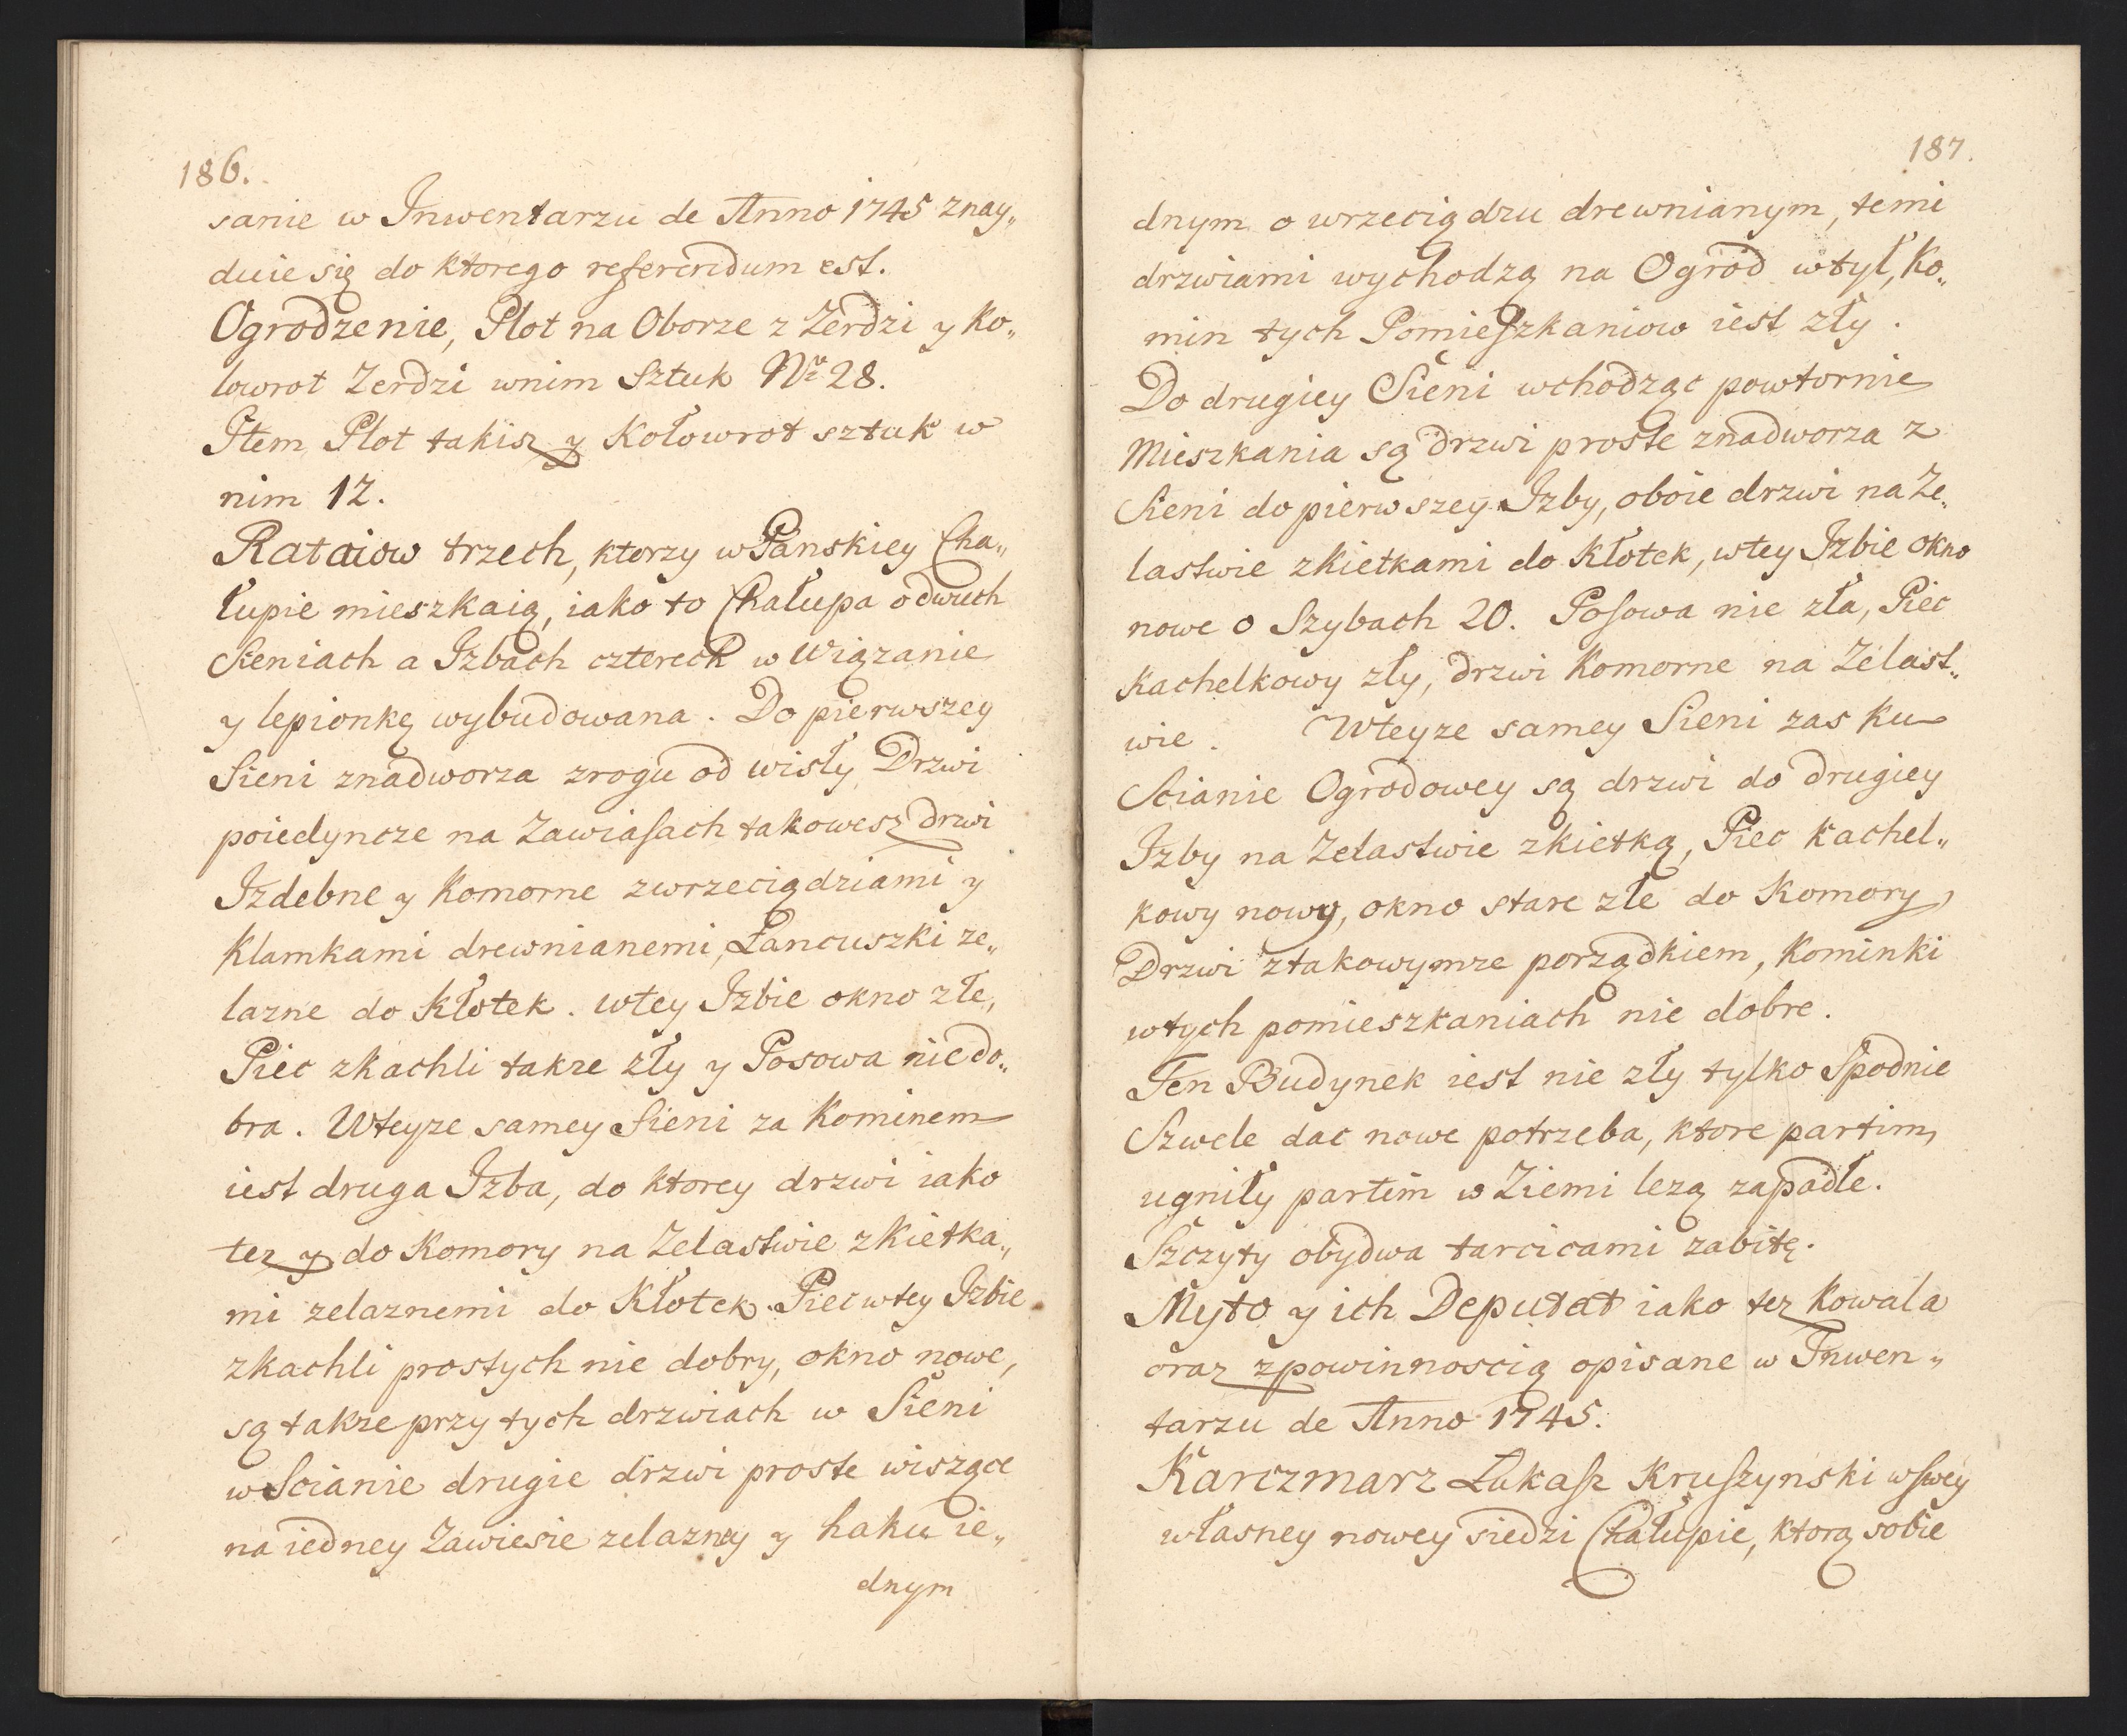 186.
sanie w Inwentarzu de Anno 1745 znay„
duie się do ktorego referendum est.
Ogrodzenie, Plot na Oborze z Zerdzi y Ko„
lowrot Zerdzi wnim Sztuk Nro 28.
Item Plot takisz y Kołowrot sztuk w
nim 12.
Rataiow trzech, ktorzy w Panskiey Cha„
łupie mieszkaią, iako to Chałupa o dwuch
Sieniach a Izbach czterech w Wiązanie
y lepionkę wybudowana. Do pierwszey
Sieni znadworza zrogu od wisły Drzwi
poiedyncze na Zawiasach takowesz drzwi
Izdebne y Komorne zwrzeciądziami y
Klamkami drewnianemi, Łancuszki ze„
lazne do Kłotek. wtey Izbie okno złe,
Piec zkachli takze zły y Posowa niedo„
bra. Wteyze samey Sieni za Kominem
iest druga Izba, do ktorey drzwi iako
tez y do Komory na Zelastwie zkietka„
mi zelaznemi do Kłotek. Piec wtey Izbie
zkachli prostych nie dobry, okno nowe,
są takze przy tych drzwiach w Sieni
w Scianie drugie drzwi proste wiszące
na iedney Zawiesie zelazney y haku ie„
dnym
187.
dnym o wrzeciądzu drewnianym, temi
drzwiami wychodzą na Ogrod wtył, Ko„
min tych Pomieszkaniow iest zły.
Do drugiey Sieni wchodząc powtornie
Mieszkania są drzwi proste znadworza z
Sieni do pierwszey Izby, oboie drzwi na Ze„
lastwie zkietkami do Kłotek, wtey Izbie okno
nowe o Szybach 20. Posowa nie zła, Piec
Kachelkowy zły, drzwi Komorne na Zelast„
wie. Wteyze samey Sieni zas ku
Scianie Ogrodowey są drzwi do drugiey
Izby na Zelastwie zkietką, Piec kachel„
kowy nowy, okno stare złe do Komory,
Drzwi ztakowymze porządkiem, Kominki
wtych pomieszkaniach nie dobre.
Ten Budynek iest nie zły tylko Spodnie
Szwele dac nowe potrzeba, ktore partim
ugniły partim w Ziemi lezą zapadłe.
Szczyty obydwa tarcicami zabitę.
Myto y ich Deputat iako tez Kowala
oraz zpowinnoscią opisane w Inwen„
tarzu de Anno 1745.
Karczmarz Łukasz Kruszynski wswey
własney nowey siedzi Chałupie, ktorą sobie